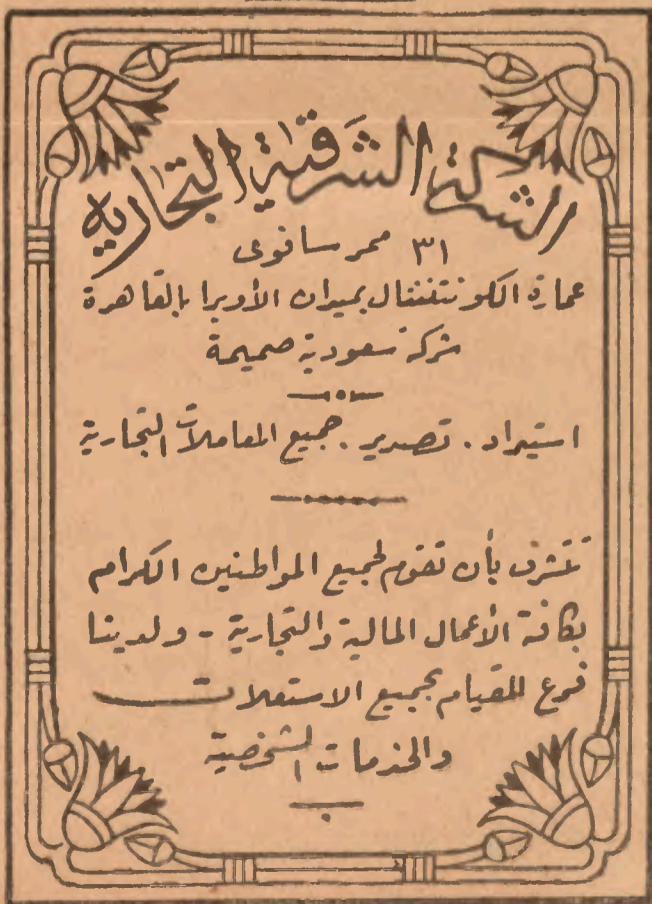 الشركة الشرقية التجارية
٣١ ممر سافوى
عمارة الكونتننتال بميدان الأوبرا بالقاهرة
شركة سعودية صميمة
استيراد . تصدير . جميع المعاملات التجارية
تتشرف بأن تقوم لجميع المواطنين الكرام
بكافة الأعمال المالية والتجارية - ولدينا
فرع للقيام بجميع الاستعلامات
والخدمات الشخصية